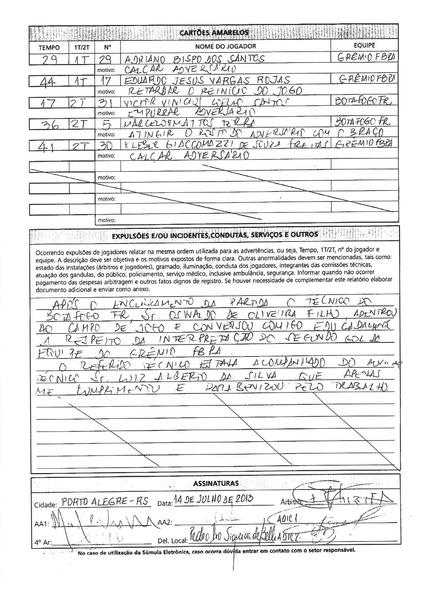 CARTÕES AMARELOS
TEMPO 1T/2T Nº NOME DO JOGADOR EQUIPE
29 1T 29 ADRIANO BISPO DOS SANTOS GRÊMIO FBPA
motivo: CALÇAR ADVERSÁRIO
44 1T 17 EDUARDO JESUS VARGAS ROJAS GRÊMIO FBPA
motivo: RETARDAR O REINÍCIO DO JOGO
17 2T 31 SANTOS BOTAFOGO FR
motivo: EMPURRAR ADVERSÁRIO
36 2T 5 BOTAFOGO FR
motivo: ATINGIR O ROSTO DO ADVERSÁRIO COM O BRAÇO
41 2T 30 KLEBER GIACOMAZZI DE SOUZA FREITAS GRÊMIO FBPA
motivo: CALÇAR ADVERSÁRIO
motivo:
motivo:
motivo:
EXPULSÕES E/OU INCIDENTES,CONDUTAS, SERVIÇOS E OUTROS
Ocorrendo expulsões de jogadores relatar na mesma ordem utilizada para as advertências, ou seja, Tempo, 1T/2T, nº do jogador e
equipe. A descrição deve ser objetiva e os motivos expostos de forma clara. Outras anormalidades devem ser mencionadas, tais como:
estado das instalações (árbitros e jogadores), gramado, iluminação, conduta dos jogadores, integrantes das comissões técnicas,
atuação dos gandulas, do público, policiamento, serviço médico, inclusive ambulância, segurança. Informar quando não ocorrer
pagamento das despesas arbitragem e outros fatos dignos de registro. Se houver necessidade de complementar este relatório elaborar
documento adicional e enviar como anexo.
APÓS O ENCERRAMENTO DA PARTIDA O TÉCNICO DO
BOTAFOGO FR SR. OSWALDO DE OLIVEIRA FILHO, ADENTROU
AO CAMPO DE JOGO E CONVERSOU COMIGO
A RESPEITO DA INTERPRETAÇÃO DO SEGUNDO GOL DA
EQUIPE DO GRÊMIO FBPA
O REFERIDO TÉCNICO ESTAVA ACOMPANHADO DO AUXILIAR
TÉCNICO SR. LUIZ ALBERTO DA SILVA QUE APENAS
ME CUMPRIMENTOU E PARABENIZOU PELO TRABALHO
ASSINATURAS
Cidade: PORTO ALEGRE-RS Data: 14 DE JULHO DE 2013 Árbitro:
AA1: AA2:
4º Ar: Del. Local:
No caso de utilização da Súmula Eletrônica, caso ocorra dúvida entrar em contato com o setor responsável.